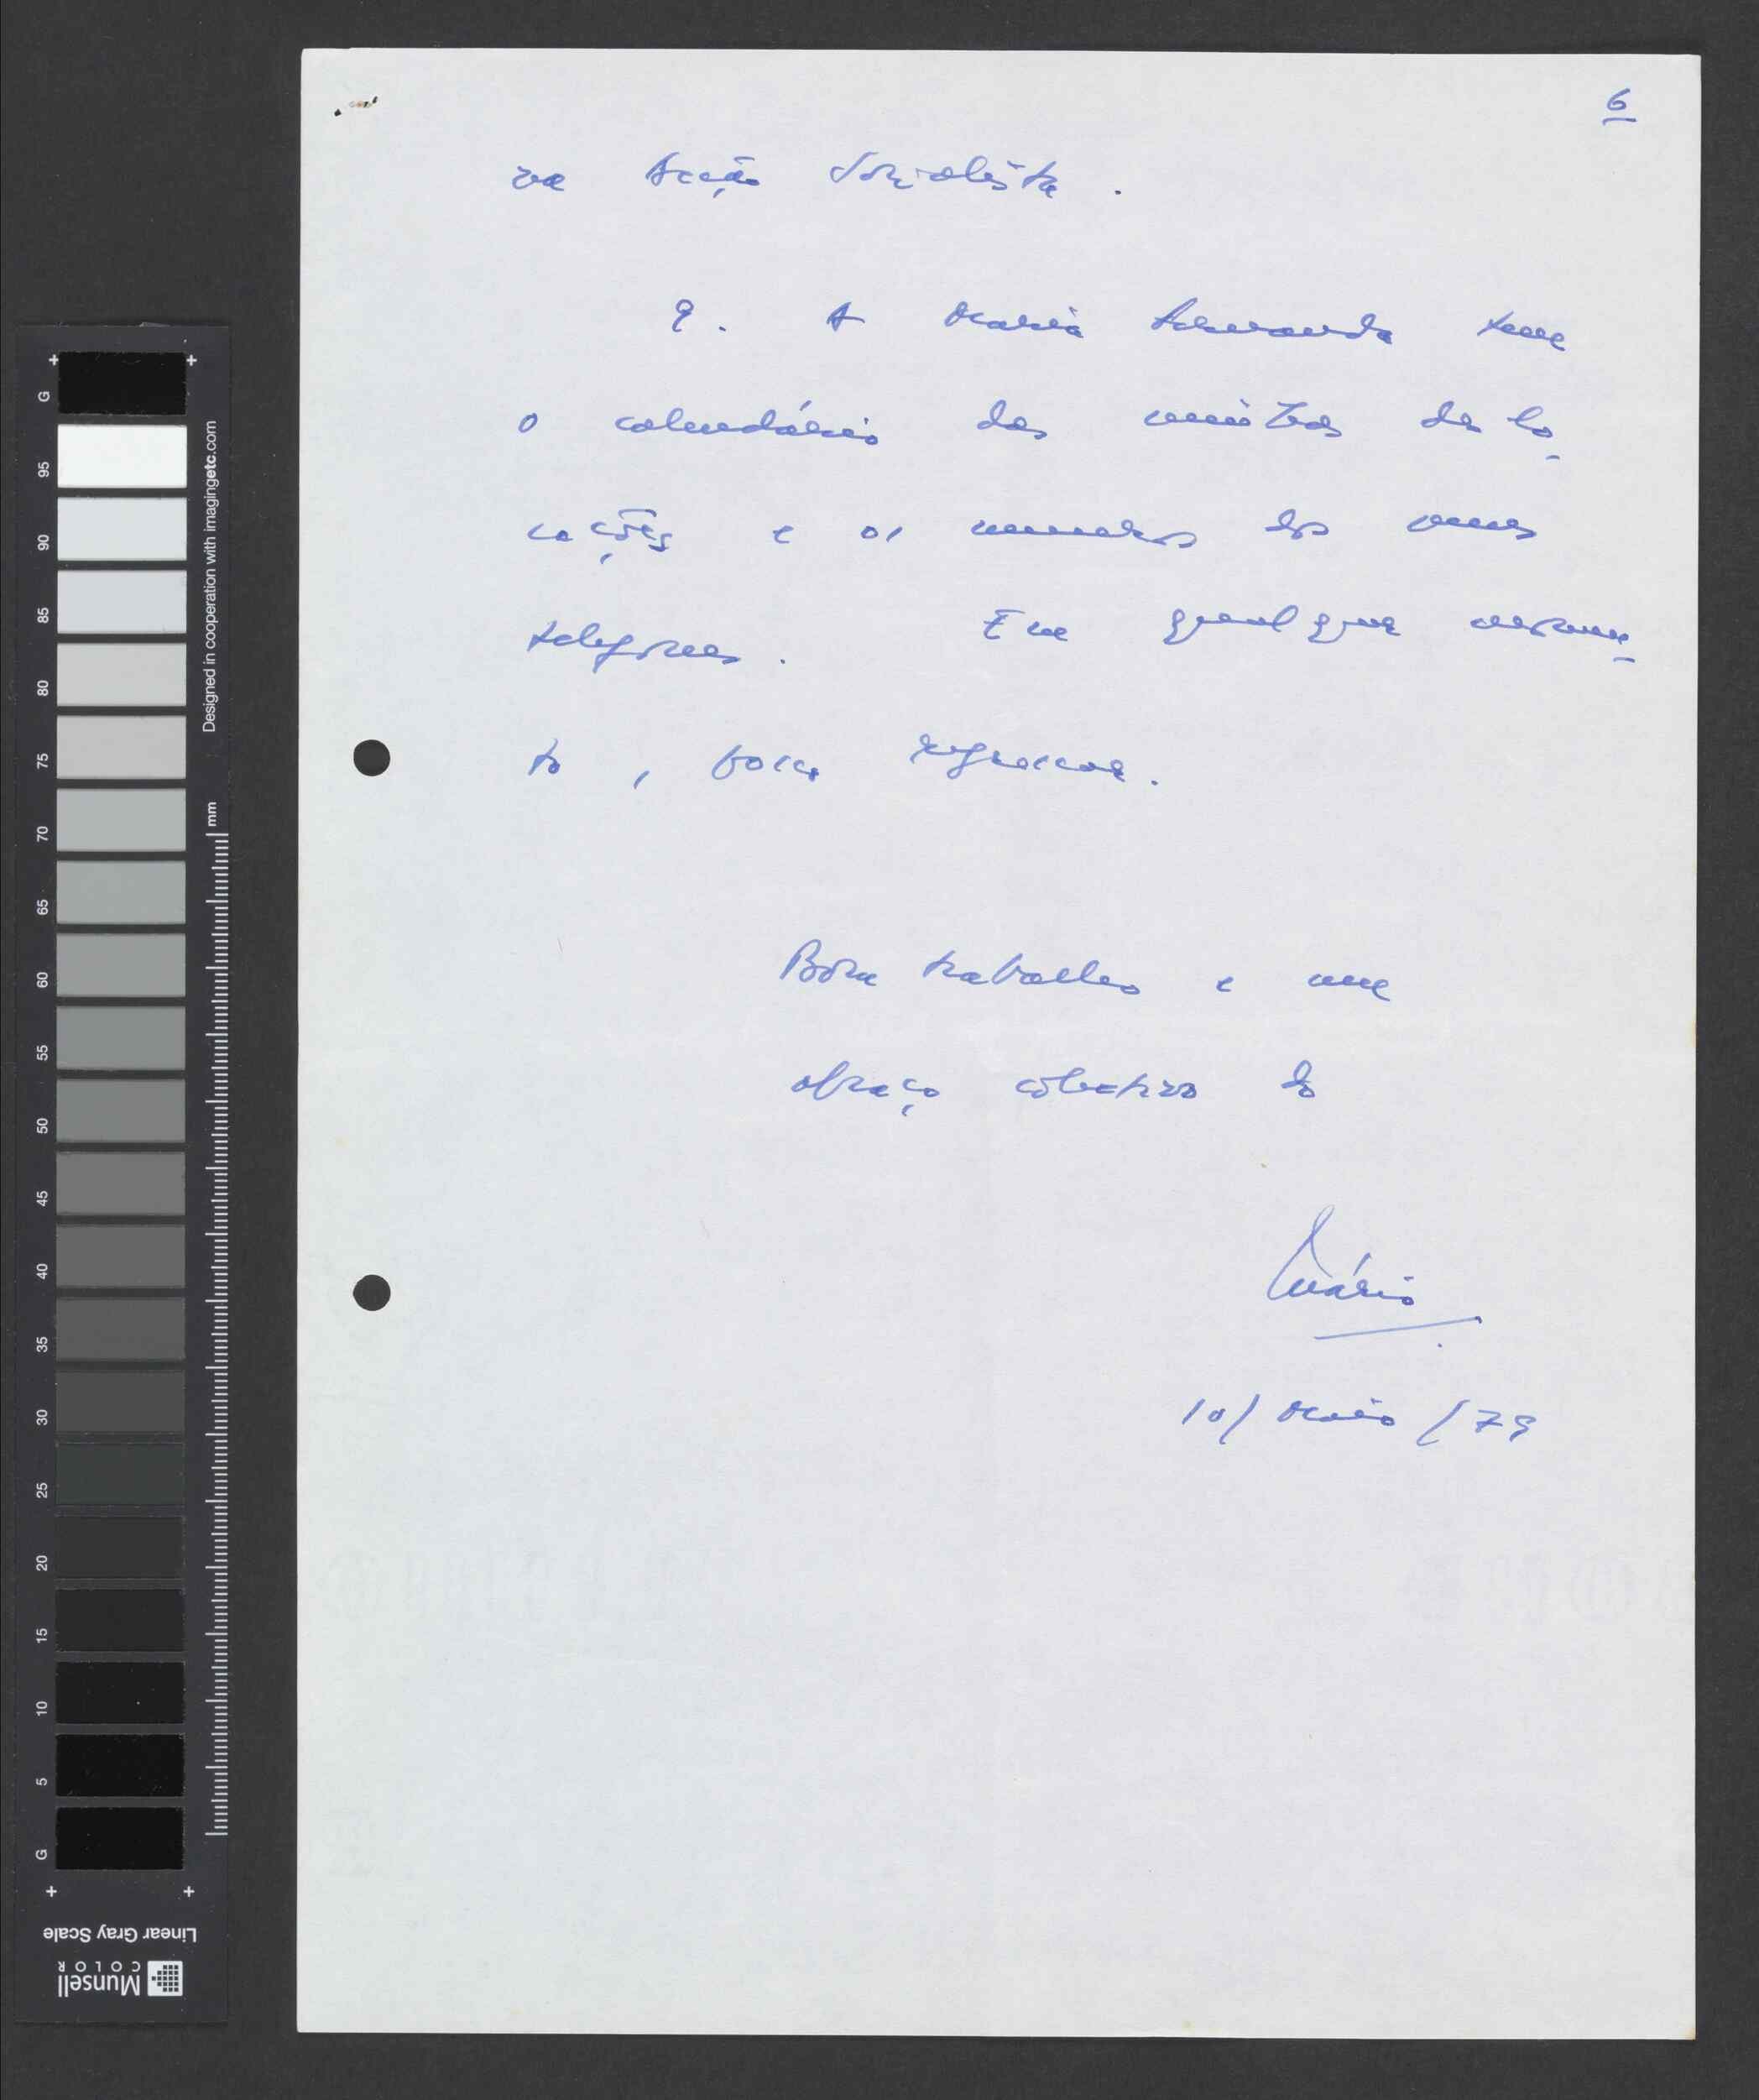 6
na Acção Socialista.
9. A Maria Fernanda tem
o calendário das minhas deslo-
cações e os numeros dos meus
telefones. Em qualquer momen-
to, posso regressar.
Bom trabalho e um
abraço colectivo do
Mário
10/Maio/79
G
95
90
85
80
75
70
65
60
55
50
45
40
35
30
25
20
15
10
5
G
Designed in cooperation with imagingetc.com
mm
Linear Gray Scale
Munsell
COLOR